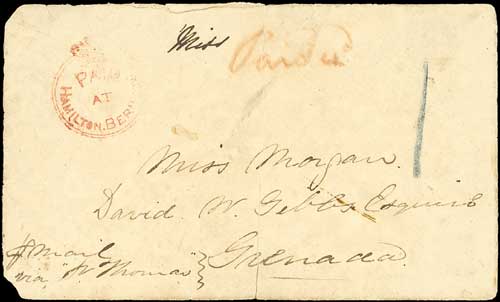 Miss
PAID
AT
HAMILTON. BER
1
Miss Morgan.
David W. Gibbs Esquire
Grenada.
p mail
via St Thomas